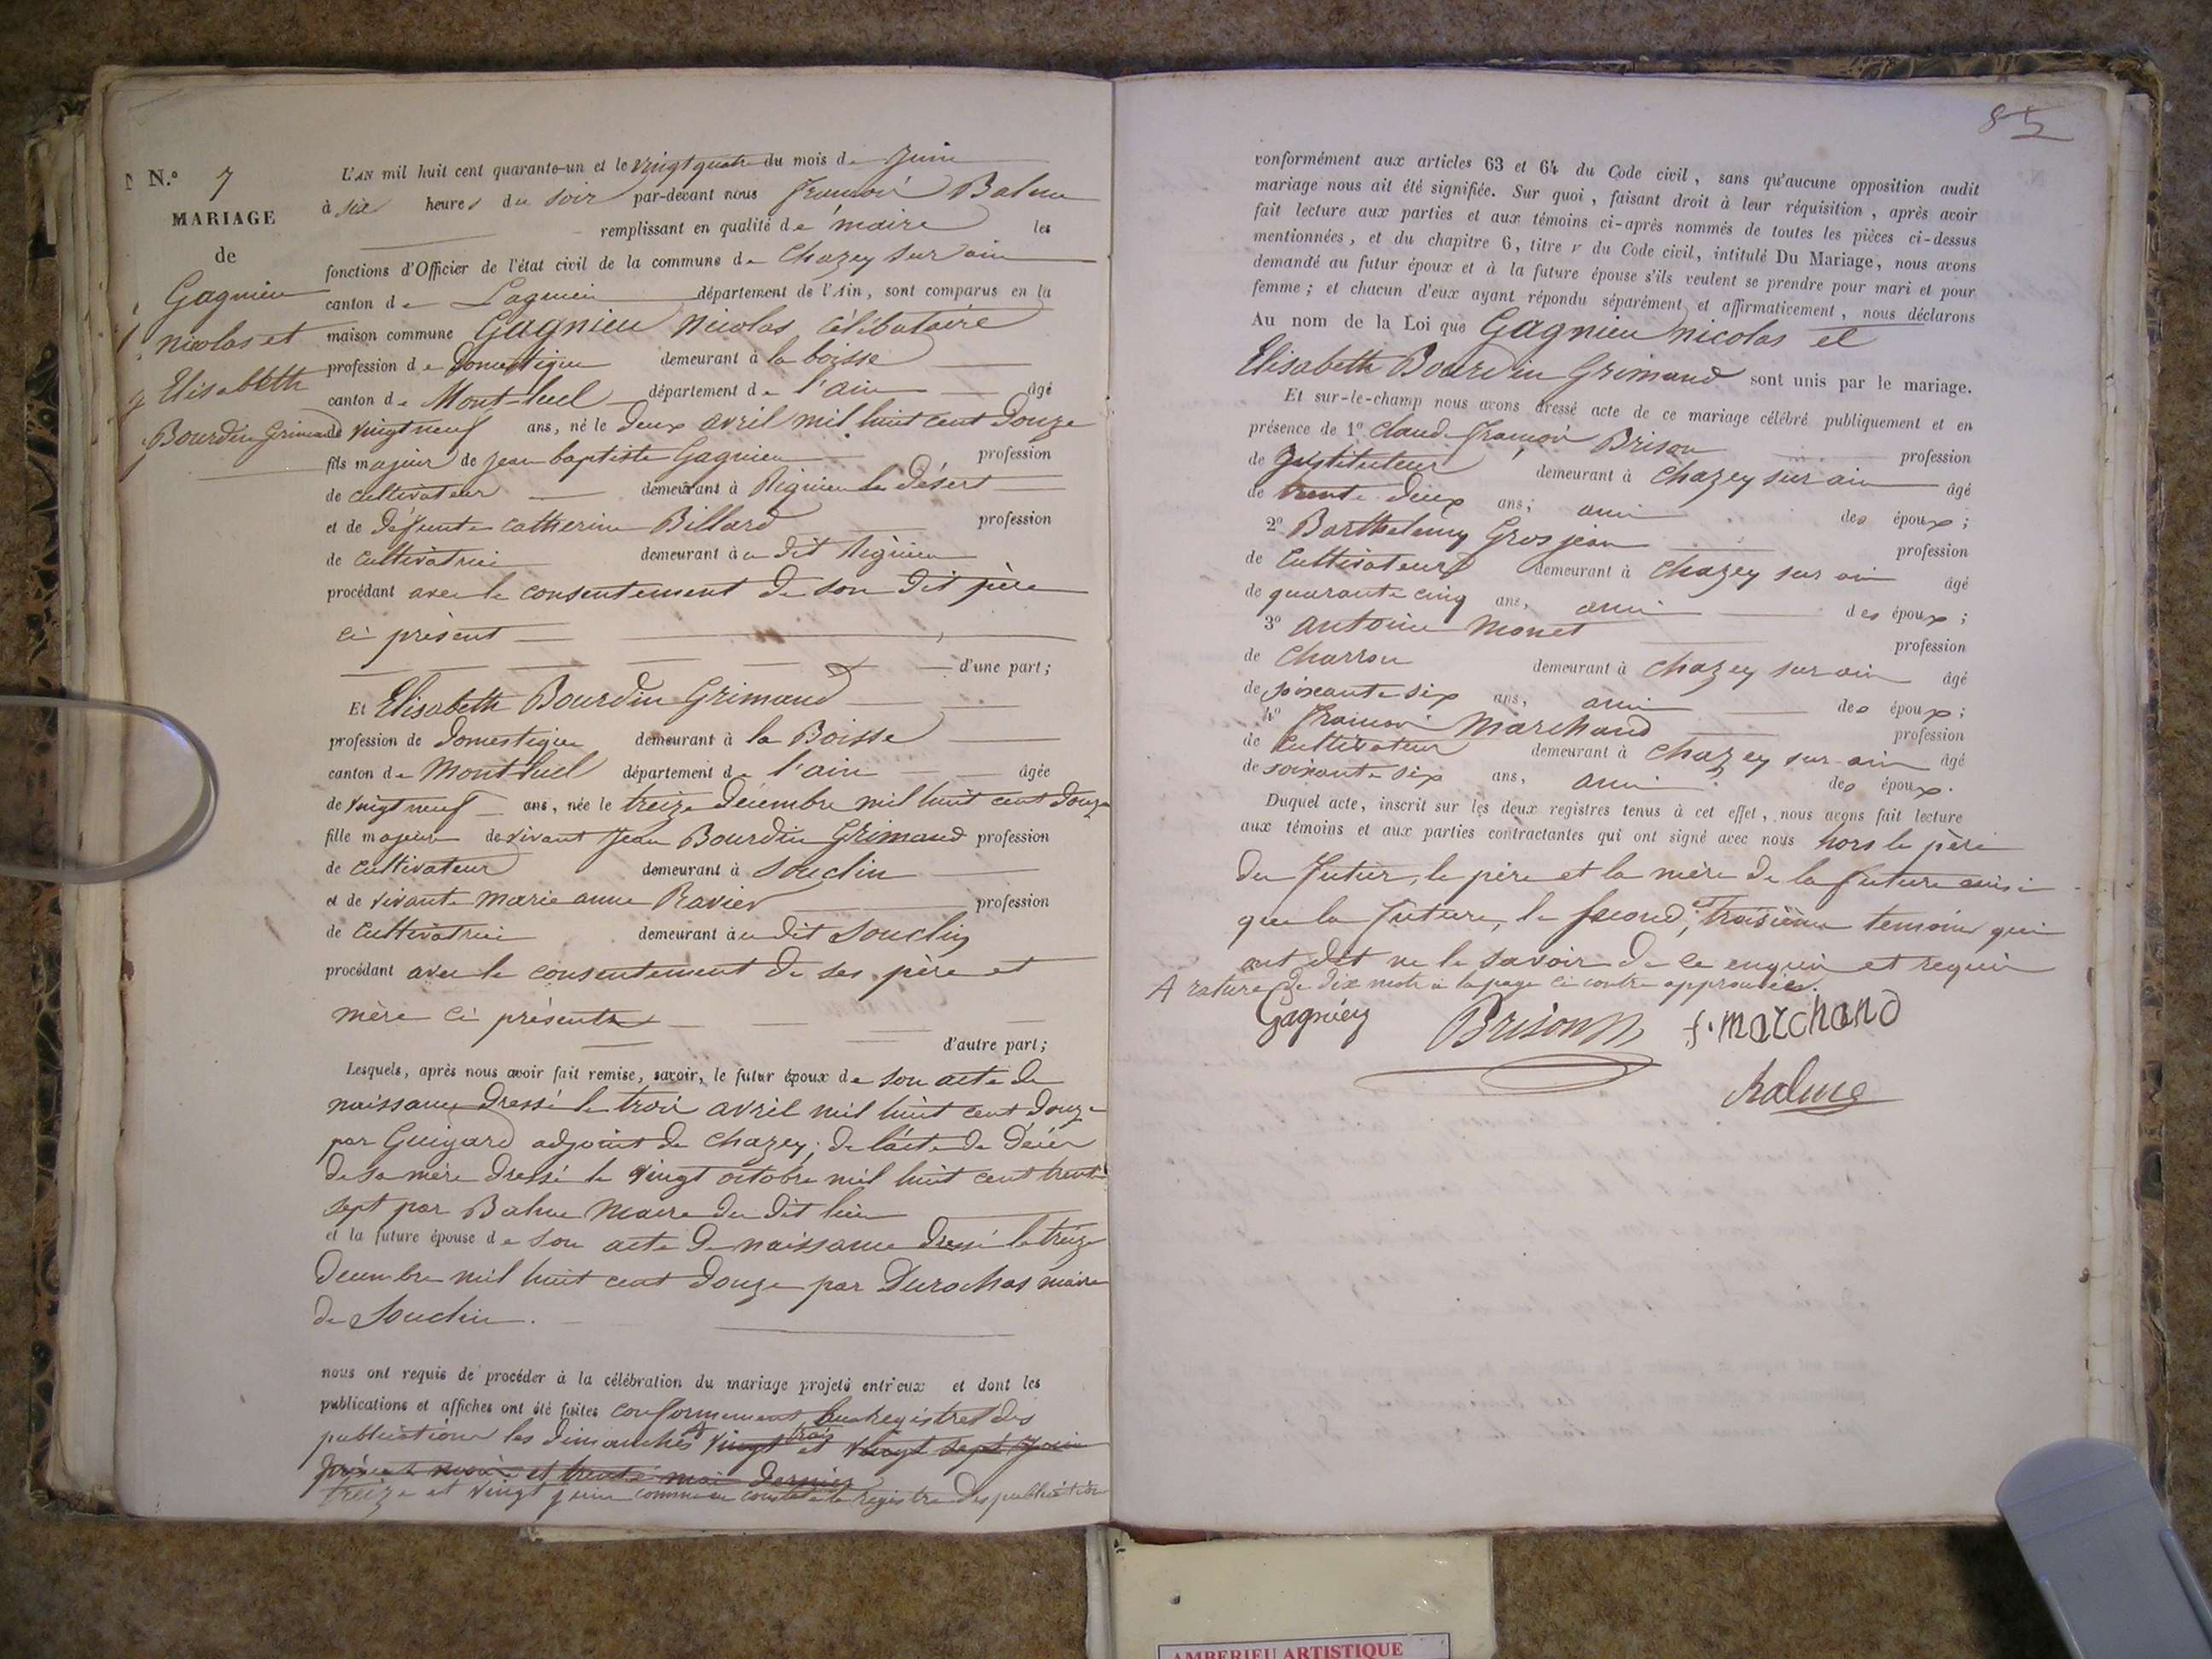 N.º 7
MARIAGE
de
Gagnieu
nicolas et
Elisabeth
Bourdin Grimaud
L'AN mil huit cent quarante-un et le vingt quatre du mois de Juin
à six heures du soir par-devant nous François Balme
remplissant en qualité de maire les
fonctions d'Officier de l'état civil de la commune de Chazey sur ain
canton de Lagnieu département de l'Ain, sont comparus en la
maison commune Gagnieu Nicolas, Célibataire
profession de Domestique demeurant à la boisse
canton de Mont-luel département de l'ain âgé
de vingt neuf ans, né le deux avril mil huit cent douze
fils majeur de jean baptiste Gagnieu profession
de cultivateur demeurant à Rignieu le désert
et de défunte catherine Billard profession
de cultivatrice demeurant au dit Rignieu
procédant avec le consentement de son dit père
ci présent
d'une part;
Et Elisabeth Bourdin Grimaud
profession de Domestique demeurant à la Boisse
canton de Montluel département de l'ain âgée
de vingt neuf ans, née le treize décembre mil huit cent douze
fille majeure de vivant Jean Bourdin Grimaud profession
de cultivateur demeurant à Souclin
et de vivante marie anne Ravier profession
de cultivatrice demeurant au dit Souclin
procédant avec le consentement de ses père et
mère ci présents
d'autre part;
Lesquels, après nous avoir fait remise, savoir, le futur époux de son acte de
naissance dressé le trois avril mil huit cent douze
par Guigard adjoint de chazey; de l'acte de décès
de sa mère dressé le vingt octobre mil huit cent trente
sept par Balme Maire du dit lieu
et la future épouse de son acte de naissance dressé le treize
decembre mil huit cent douze par Durochas maire
de Souclin.
nous ont requis de procéder à la célébration du mariage projeté entr'eux et dont les
publications et affiches ont été faites conformement aux registres des
publications les dimanches vingt trois et vingt sept juin
et trente mai dernier
treize et vingt juin comme constate le registre des publications
85
conformément aux articles 63 et 64 du Code civil, sans qu'aucune opposition audit
mariage nous ait été signifiée. Sur quoi, faisant droit à leur réquisition, après avoir
fait lecture aux parties et aux témoins ci-après nommés de toutes les pièces ci-dessus
mentionnées, et du chapitre 6, titre v du Code civil, intitulé Du Mariage, nous avons
demandé au futur époux et à la future épouse s'ils veulent se prendre pour mari et pour
femme; et chacun d'eux ayant répondu séparément et affirmativement, nous déclarons
Au nom de la Loi que Gagnieu nicolas et
Elisabeth Bourdin Grimaud sont unis par le mariage.
Et sur-le-champ nous avons dressé acte de ce mariage célébré publiquement et en
présence de 1º claude François Brison profession
de Instituteur demeurant à chazey sur ain âgé
de trente deux ans; ami des époux;
2º Barthelemy Grosjean profession
de Cultivateur demeurant à chazey sur ain âgé
de quarante cinq ans, ami des époux;
3º antoine Monet profession
de Charron demeurant à chazey sur ain âgé
de soixante six ans, ami des époux;
4º François Marchand profession
de Cultivateur demeurant à chazey sur ain âgé
de soixante six ans, ami des époux.
Duquel acte, inscrit sur les deux registres tenus à cet effet, nous avons fait lecture
aux témoins et aux parties contractantes qui ont signé avec nous hors le père
du futur, le père et la mère de la future ainsi
que la future, le second, et troisième temoins qui
ont dit ne le savoir de ce enquis et requis
A rature de dix mots à la page ci contre approuvées.
Gagnieu Brison f. marchand
Balme
AMBERIEU ARTISTIQUE